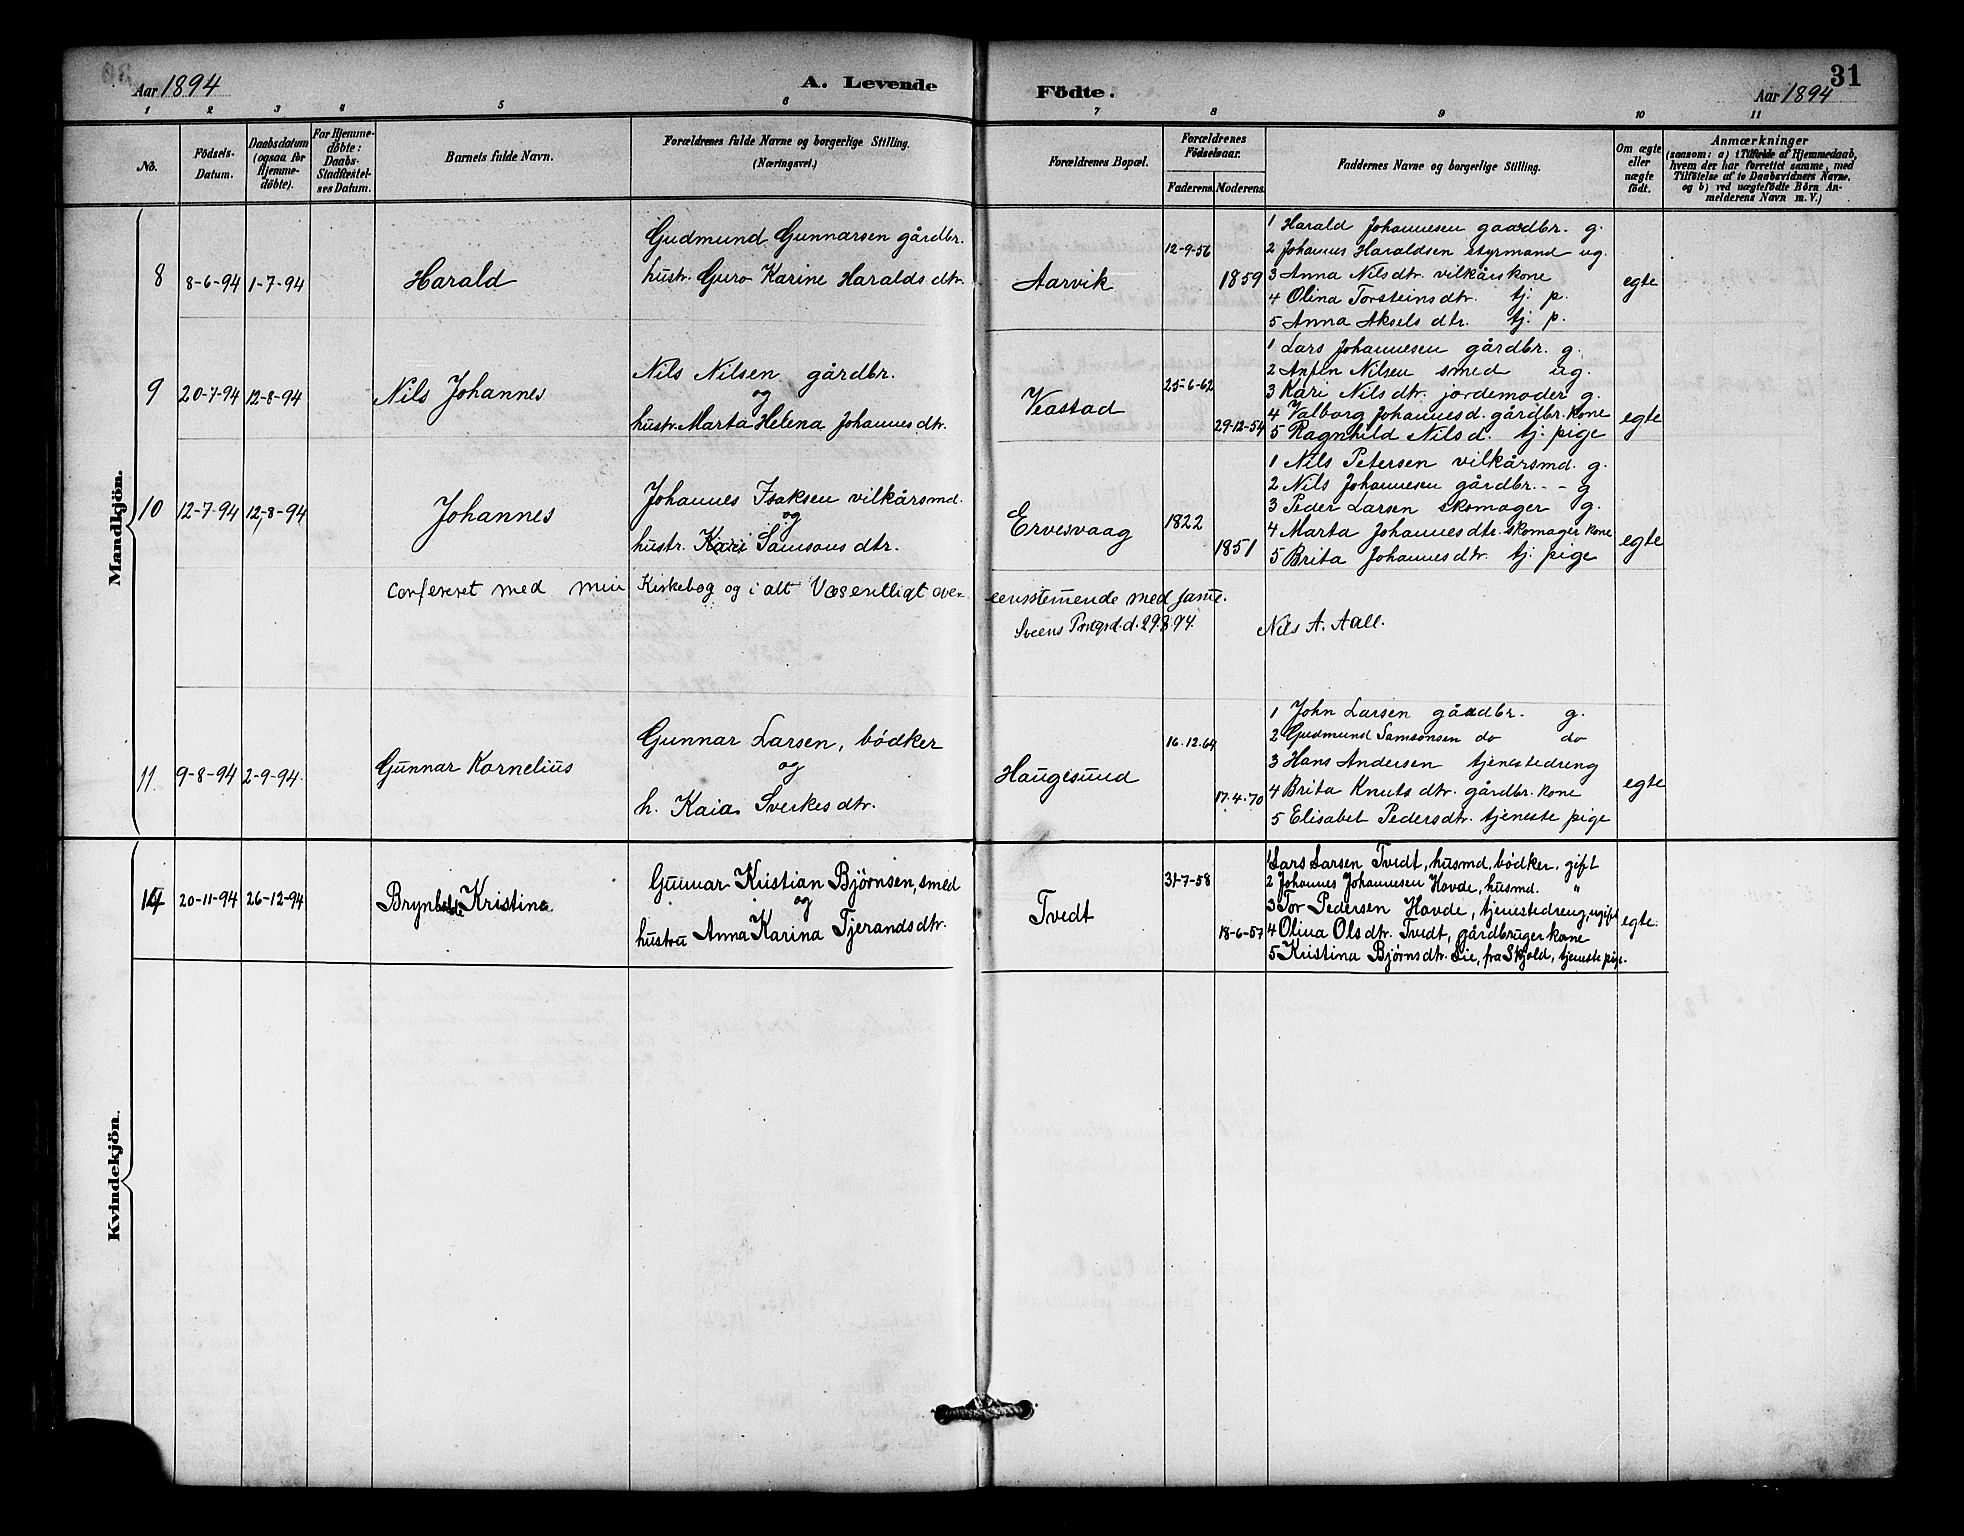 Aar 1894
A. Levende
Födte.
31
Aar 1894
1 2 3 4 5 6 7 8 9 10 11
No.
Födsels-Datum.
Daabsdatum (ogsaa for Hjemme-döbte).
For Hjemme-döbte: Daabs-Stadfæstel-ses Datum.
Barnets fulde Navn.
Forældrenes fulde Navne og borgerlige Stilling.
(Næringsvei.)
Forældrenes Bopæl.
Forældrenes Födselsaar.
Faderens. Moderens.
Faddernes Navne og borgerlige Stilling.
Om ægte eller uægte födt.
Anmærkninger
(saasom: a) i Tilfælde af Hjemmedaab,
hvem der har forrettet samme, med
Tilföielse af to Daabsvidners Navne,
og b) ved uægtefödte Börn An-
melderens Navn m. V.)
Mandkjön.
8 8-6-94 1-7-94 Harald
Gudmund Gunnarsen gårdbr.
hustr. Guro Karine Haralds dtr.
Aarvik
12-9-56
1859
1 Harald Johannesen gaardbr. g.
2 Johannes Haraldsen styrmand ug.
3 Anna Nilsdtr. vilkårskone
4 Olina Torsteinsdtr. tj. p.
5 Anna Aksels dtr. tj. p.
egte
9 20-7-94 12-8-94 Nils Johannes
Nils Nilsen gårdbr.
og
hustr. Marta Helena Johannes dtr.
Veastad
25-6-62
29-12-54
1 Lars Johannesen gårdbr. g.
2 Anfin Nilsen smed ug.
3 Kari Nilsdtr. jordemoder g.
4 Valborg Johannesd. gårdbr. kone
5 Ragnhild Nilsd. tj. pige
egte
10 12-7-94 12-8-94 Johannes
Johannes Isaksen vilkårsmd.
og
hustr. Kari Samsons dtr.
Ervesvaag
1822
1851
1 Nils Petersen vilkårsmd. g.
2 Nils Johannesen gårdbr. - - g
3 Peder Larsen skomager g.
4 Marta Johannesdtr. skomager kone
5 Brita Johannesdtr. tj. pige
egte
Confereret med min Kirkebog og i alt Væsentligt over-
eensstemende med samme.
Sveens Prstgrd. d. 29.8.94. Nils A. Aall.
11. 9-8-94 2-9-94. Gunnar Kornelius
Gunnar Larsen, bødker
og
h. Kaia Sverkesdtr.
Haugesund
16.12.64
17.4.70
1 John Larsen gårdbr. g.
2 Gudmund Samsonsen do do
3 Hans Andersen tjenestedreng
4 Brita Knuts dtr. gårdbr. kone
5 Elisabet Pedersdtr. tjeneste pige
egte
Kvindekjön.
14 20-11-94 26-12-94 Brynhilde Kristine
Gunnar Kristian Bjørnsen, smed
og
hustru Anna Karina Tjerandsdtr.
Tvedt
31-7-58
18-6-57
1 Lars Larsen Tvedt, husmd, bødker, gift
2 Johannes Johannesen Hovde, husmd. "
3 Tor Pedersen Hovde, tjenestedreng, ugift
4 Olina Olsdtr. Tvedt, gårdbruger kone
5 Kristina Bjørnsdtr. Lie, fra Skjold, tjeneste pige.
egte.